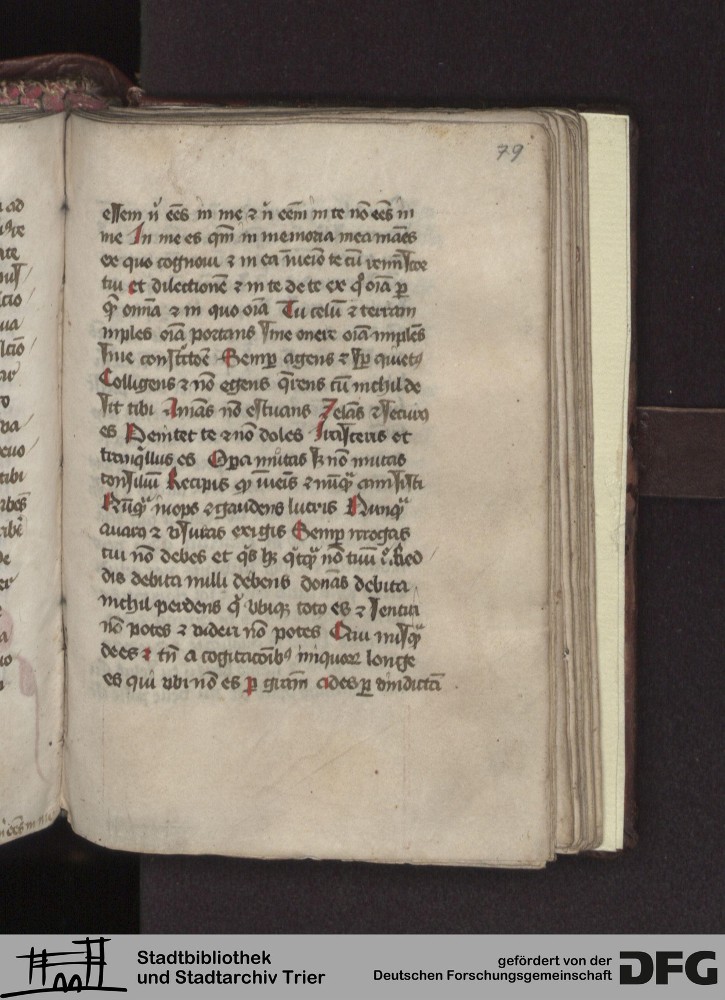 79
essem n̄ eēs in me ⁊ n̄ eēm in te nō eēs in
me In me es qm̄ in memoria mea manēs
ex quo cognoui ⁊ in ea inueīo te cū remīscor
tui et dilectionē ⁊ in te de te ex qͦ oīa ꝑ
q̄ omīa ⁊ in quo oīa Tu celū ⁊ terram
imples oīa portans sine onere oīa implēs
sine Semꝑ agens ⁊ sꝑ quietꝰ
Colligens ⁊ nō egens q̄rens cū nichil de
sit tibi Amās nō estuans Zelās ⁊ securꝰ
es Penitet te ⁊ nō doles Irasceris et
tranqͥllus es Oꝑa mutas sꝫ nō mutas
consiliū Recipis qͦ īueīs ⁊ nūqͣ amisisti
Nūqͣ inops ⁊ gaudens lucris Nunqͣ
auarꝰ ⁊ vsuras exigis Semꝑ
tui nō debes et qͥs hꝫ qͥcqͣ nō tuū Red
dis debita nulli debens donās debita
nichil perdens qͥ vbiqꝫ totꝰ es ⁊ sentiri
nō potes ⁊ videri nō potes Qui nusqͣ
dees ⁊ tn̄ a cogitacōibꝰ iniquorꝝ longe
es qui vbi nō es ꝑ gr̄am ades ꝑ vindictā
Stadtbibliothek
und Stadtarchiv Trier
gefördert von der
Deutschen Forschungsgemeinschaft
DFG